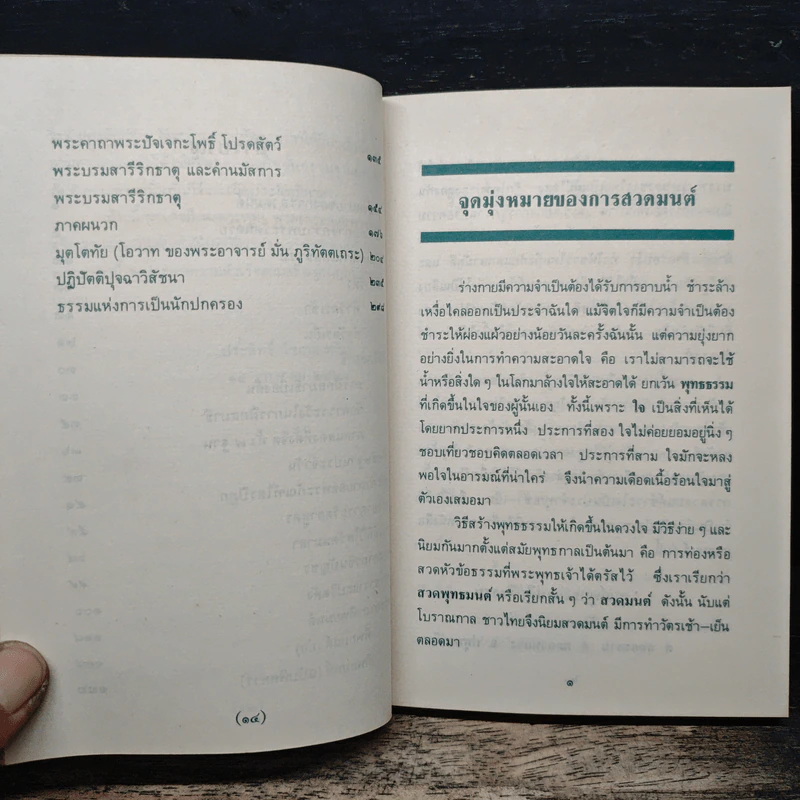 พระคาถาพระปัจเจกะโพธิ์ โปรดสัตว์ ๑๓๕
พระบรมสารีริกธาตุ และคำนมัสการ
พระบรมสารีริกธาตุ ๑๕๔
ภาคผนวก ๑๗๖
มุตโตทัย (โอวาท ของพระอาจารย์ มั่น ภูริทัตตเถระ) ๒๐๔
ปฏิปัตติปุจฉาวิสัชนา ๒๓๕
ธรรมแห่งการเป็นนักปกครอง ๒๔๘
(๑๔)
จุดมุ่งหมายของการสวดมนต์
ร่างกายมีความจำเป็นต้องได้รับการอาบน้ำ ชำระล้าง
เหงื่อไคลออกเป็นประจำฉันใด แม้จิตใจก็มีความจำเป็นต้อง
ชำระให้ผ่องแผ้วอย่างน้อยวันละครั้งฉันนั้น แต่ความยุ่งยาก
อย่างยิ่งในการทำความสะอาดใจ คือ เราไม่สามารถจะใช้
น้ำหรือสิ่งใด ๆ ในโลกมาล้างใจให้สะอาดได้ ยกเว้น พุทธธรรม
ที่เกิดขึ้นในใจของผู้นั้นเอง ทั้งนี้เพราะ ใจ เป็นสิ่งที่เห็นได้
โดยยากประการหนึ่ง ประการที่สอง ใจไม่ค่อยยอมอยู่นิ่ง ๆ
ชอบเที่ยวชอบคิดตลอดเวลา ประการที่สาม ใจมักจะหลง
พอใจในอารมณ์ที่น่าใคร่ จึงนำความเดือดเนื้อร้อนใจมาสู่
ตัวเองเสมอมา
วิธีสร้างพุทธธรรมให้เกิดขึ้นในดวงใจ มีวิธีง่าย ๆ และ
นิยมกันมากตั้งแต่สมัยพุทธกาลเป็นต้นมา คือ การท่องหรือ
สวดหัวข้อธรรมที่พระพุทธเจ้าได้ตรัสไว้ ซึ่งเราเรียกว่า
สวดพุทธมนต์ หรือเรียกสั้น ๆ ว่า สวดมนต์ ดังนั้น นับแต่
โบราณกาล ชาวไทยจึงนิยมสวดมนต์ มีการทำวัตรเช้า–เย็น
ตลอดมา
๑